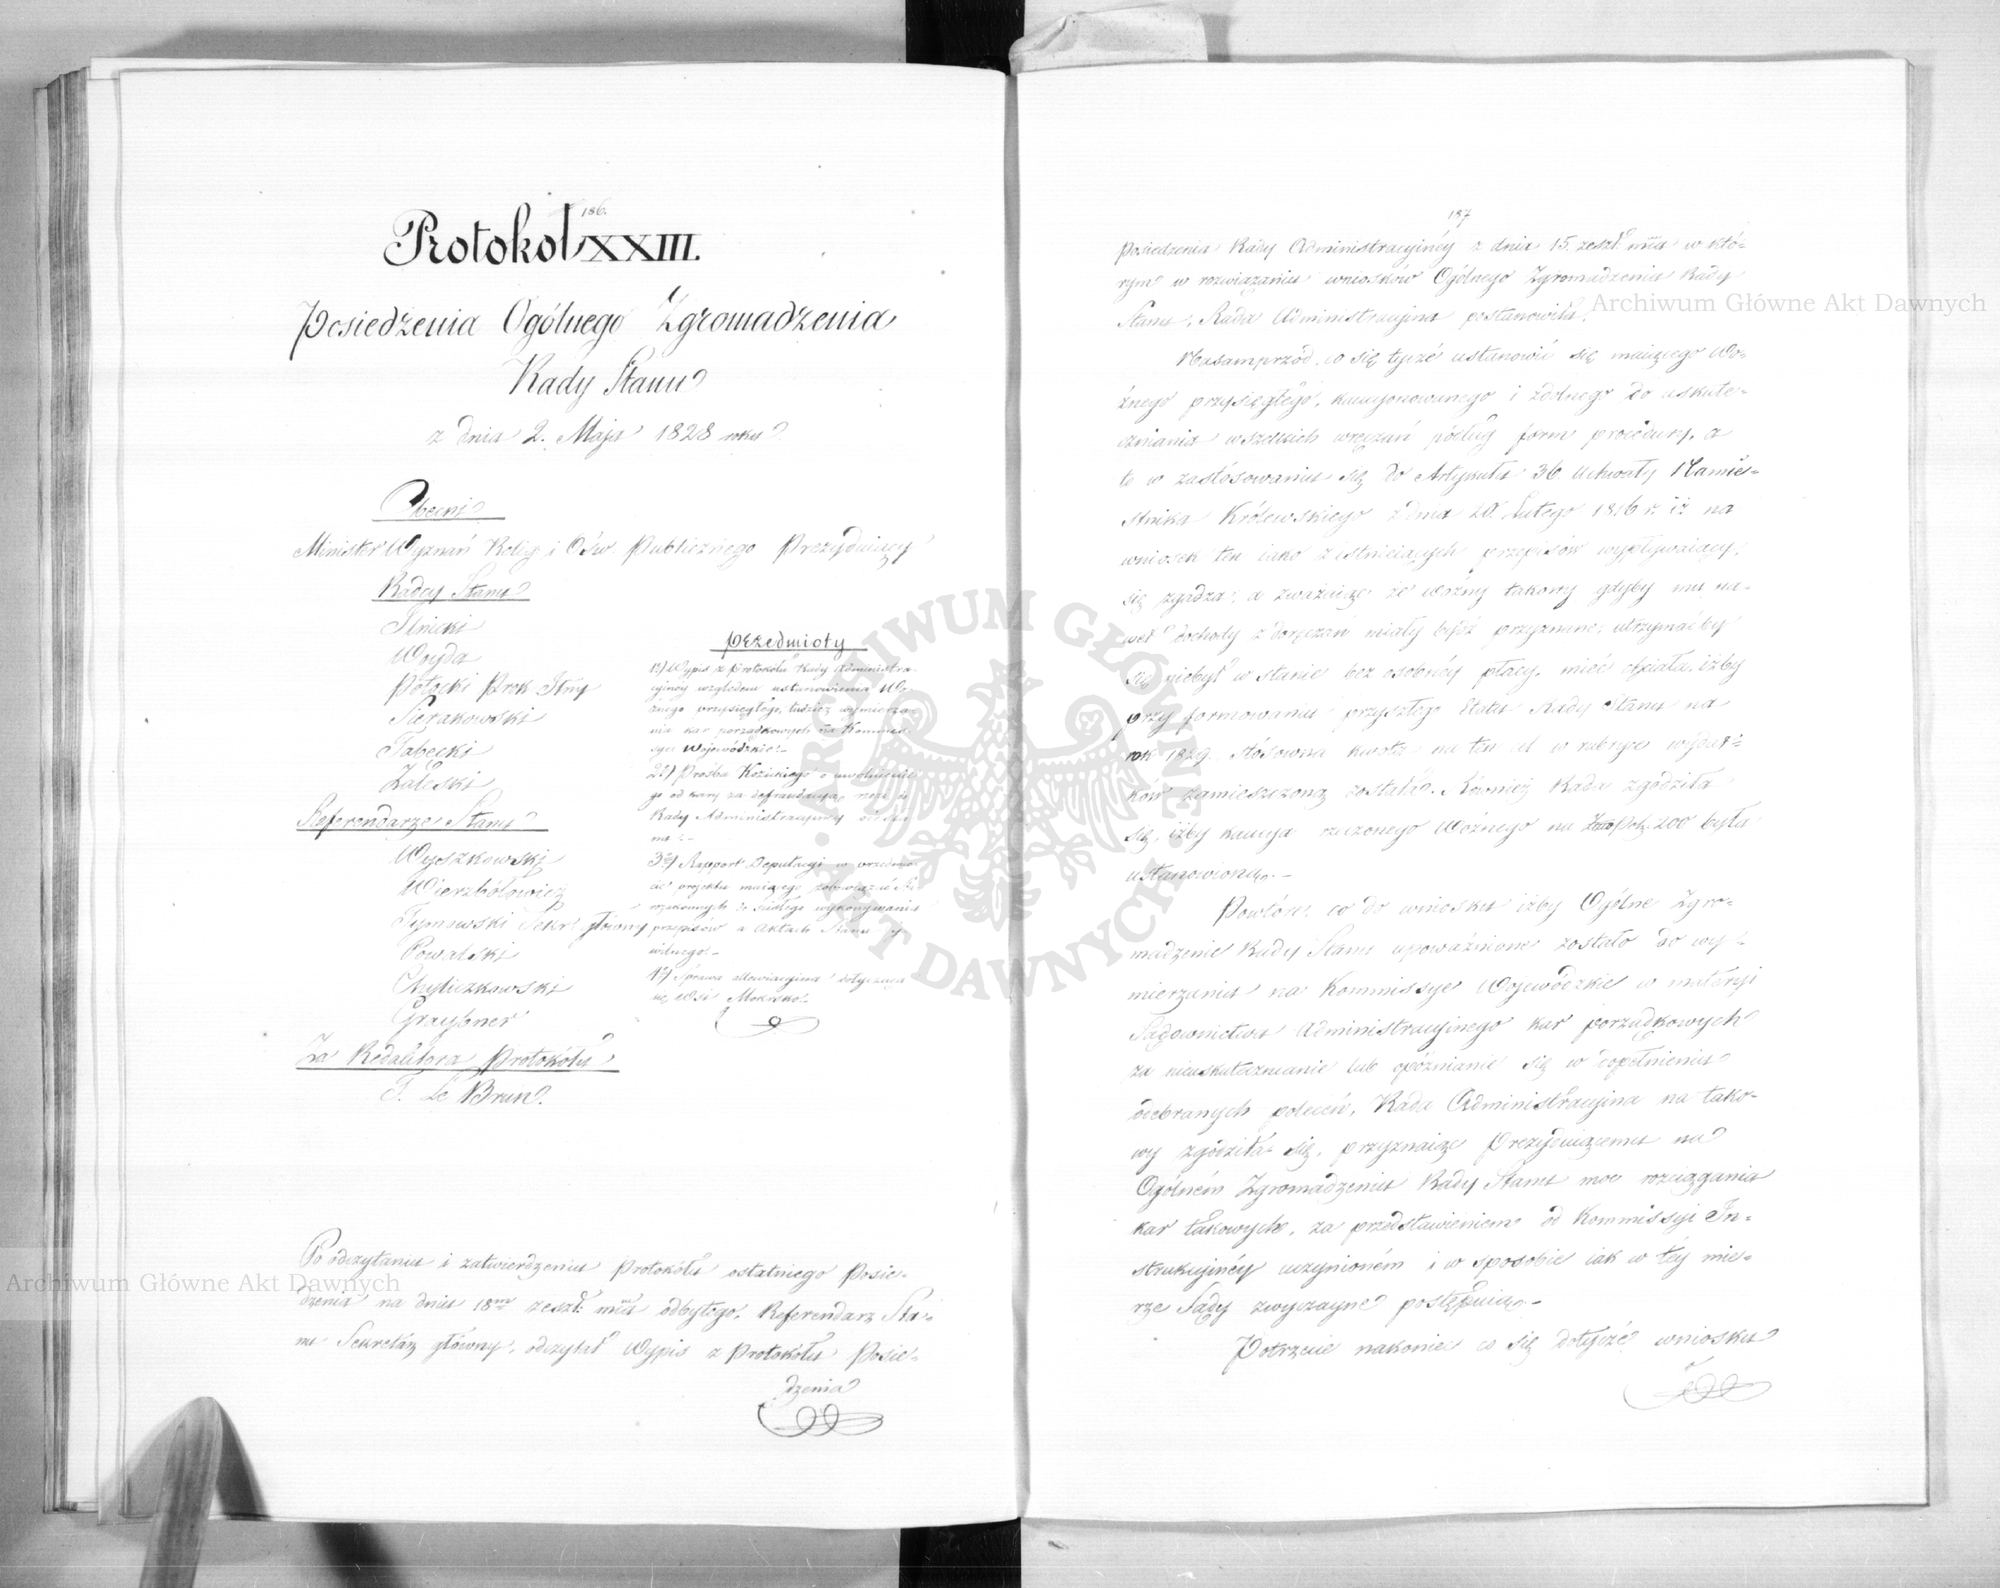 186.
Protokoł XXIII.
Posiedzenia Ogólnego Zgromadzenia
Rady Stanu
z dnia 2. Maja 1828 roku
Obecni
Minister Wyznań Relig. i Ośw. Publicznego Prezyduiący
Radcy Stanu
Ilnicki
Woyda
Potocki Prok. Itny
Sierakowski
Tabęcki
Zaleski
Referendarze Stanu
Wyszkowski
Wierzbołowicz
Tymowski Sekr. główny
Powalski
Chyliczkowski
Graybner
Za Redaktora Protokółu
F. Le Brun.
Przedmioty
1º) Wypis z Protokółu Rady Administra-
cyinéy względem ustanowienia Wo-
źnego przysięgłego, tudzież wymierza-
nia kar porządkowych na Kommis-
sye Wojewódzkie.-
2º) Prośba Kozickiego o uwolnienie
go od kary za defraudacyą,
Rady Administracyjnéy
3º) Rapport Deputacyi w przedmio-
cie projektu maiącego
wykonywania
przepisów o Aktach Stanu Cy-
wilnego.-
4º) Sprawa allewiacyjna dotycząca
się Wsi Mokrsko.-
Po odczytaniu i zatwierdzeniu Protokółu ostatniego Posie-
dzenia na dniu 18m zeszł: mca odbytego, Referendarz Sta-
nu Sekretarz główny, odczytał Wypis z Protokółu Posie-
dzenia
187
Posiedzenia Rady Administracyinéy z dnia 15. zeszł: mca w któ-
rym w rozwiązaniu wniosków Ogólnego Zgromadzenia Rady
Stanu, Rada Administracyina postanowiła.
Nasamprzód, co się tycze ustanowić się maiącego Wo-
źnego przysięgłego, kaucyonowanego i zdolnego do uskute-
czniania wszelkich wręczań podług form procedury, a
to w zastósowaniu się do Artykułu 36 Uchwały Namie-
stnika Królewskiego z dnia 20. Lutego 1816 r. iż na
wniosek ten iako z istnieiących przepisów wypływaiący,
się zgadza, a zważaiąc że woźny takowy gdyby mu na-
wet dochody z doręczań miały bydź przyznane, utrzymaćby
się niebył w stanie bez osobnéy płacy, mieć chciała, iżby
przy formowaniu przyszłego Etatu Rady Stanu na
rok 1829. stósowna kwota na ten cel w rubryce wydat-
ków zamieszczoną została. Również Rada zgodziła
się, iżby kaucya rzeczonego Woźnego na Złtp Pol. 200 była
ustanowioną.-
Powtóre, co do wniosku iżby Ogólne Zgro-
madzenie Rady Stanu upoważnione zostało do wy-
mierzania na Kommissye Wojewódzkie w materyi
Sądownictwa Administracyjnego kar porządkowych
za nieuskutecznianie lub opóźnianie się w dopełnieniu
odebranych poleceń, Rada Administracyina na tako-
wy zgodziła się, przyznaiąc Prezyduiącemu na
Ogólném Zgromadzeniu Rady Stanu moc rozciągania
kar takowych, za przedstawieniem od Kommissyi In-
strukcyjnéy uczynioném i w sposobie iak w téy mie-
rze Sądy zwyczayne postępuią.-
Potrzecie nakoniec co się dotycze wniosku
Archiwum Główne Akt Dawnych
Archiwum Główne Akt Dawnych
ARCHIWUM GŁÓWNE AKT DAWNYCH